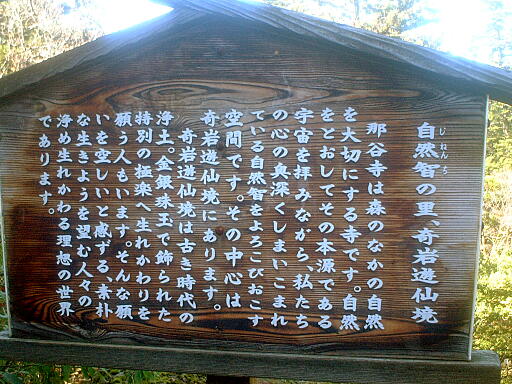 自然智の里、奇岩遊仙境
じねんち
那谷寺は森のなかの自然
を大切にする寺です。自然
をとおしてその本源である
宇宙を拝みながら、私たち
の心の奥深くしまいこまれ
ている自然智をよろこびおこす
空間です。その中心は
奇岩遊仙境にあります。
奇岩遊仙境は古き時代の
浄土。金銀珠玉で飾られた
特別の極楽へ生れかわりを
願う人もいます。そんな願
いを空しいと感ずる、素朴
な生きようを望む人々の
浄め生れかわる理想の世界
であります。